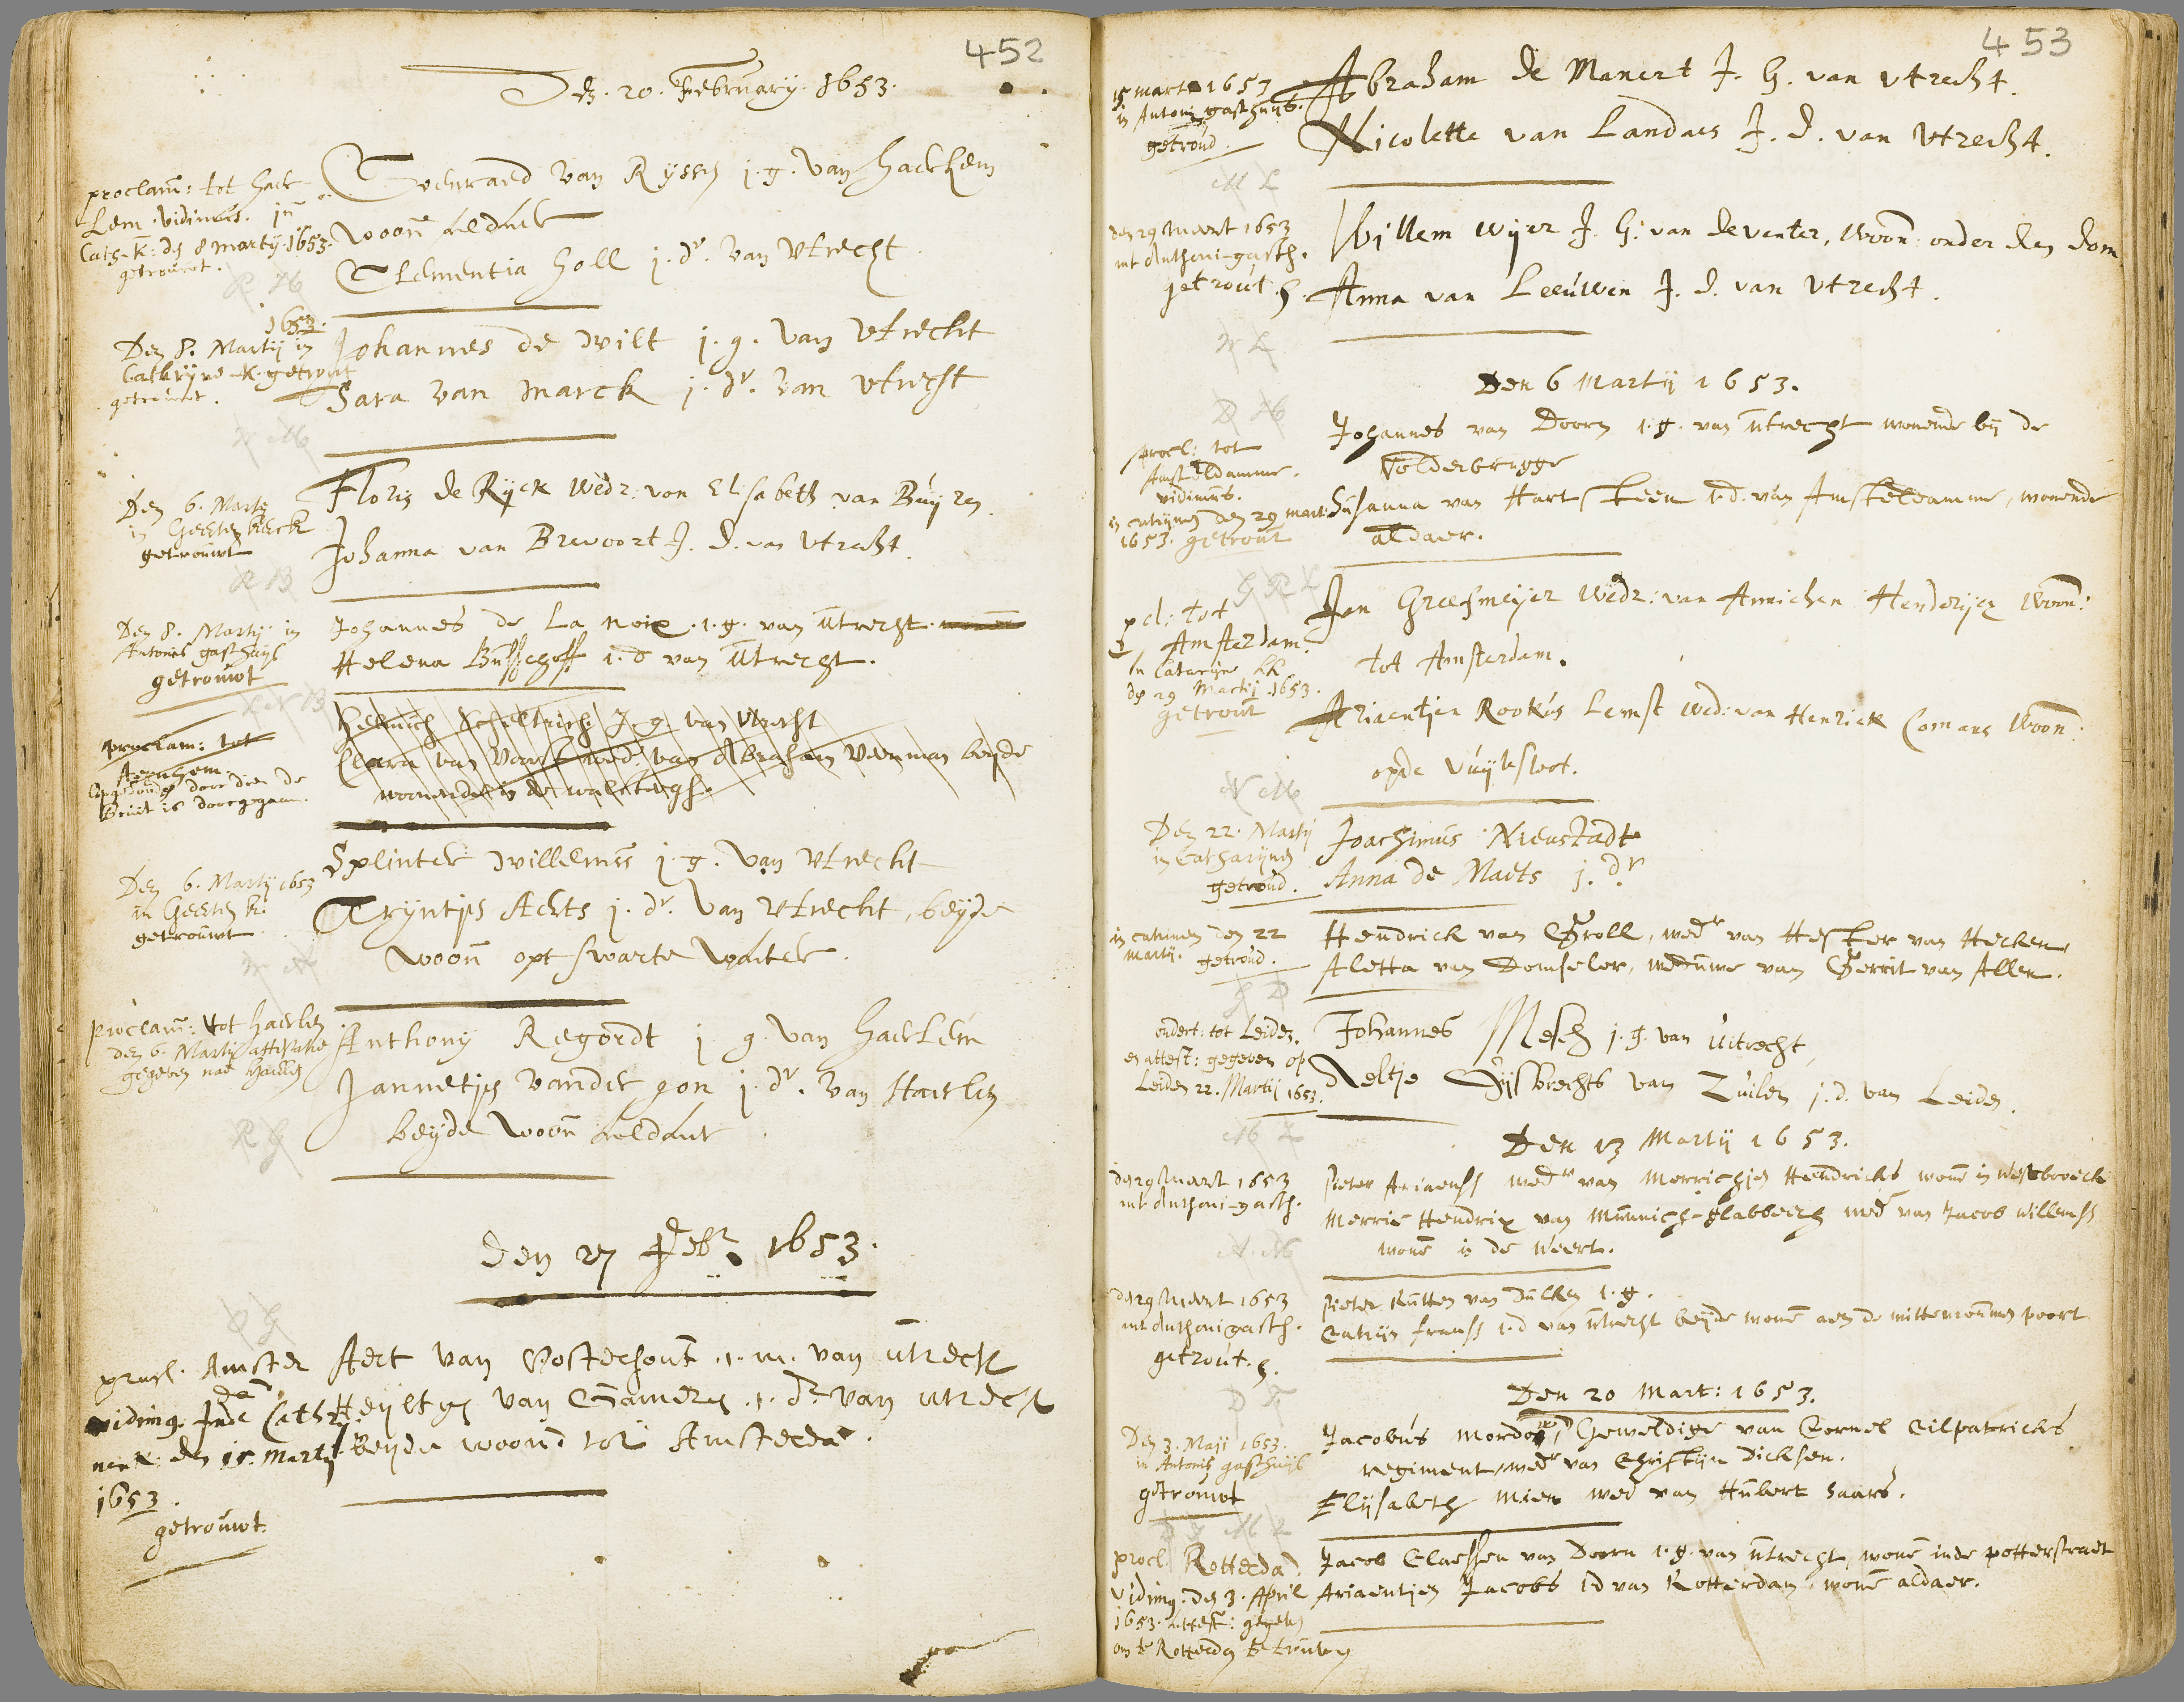 452
Den. 20. February. 1653.
proclam: tot haer-
lem. vidimus. in
Cath-k: den 8 martij. 1653.
getrouwt.
Everraed van Ryssen j. g. van haerlem
woon aldaer
Clementia holl j. dr. van Utrecht
1653.
Den 8. Martij in
Cathryne-k. getrout
getrouwt.
Johannes de wilt j. g. van Utrecht
Sara van marck j. dr. van Utrecht
Den 6. Marty
in Geerten kerck
getrouwt
Floris de Ryck Wedr: von Elisabeth van Buyren.
Johanna van Brevoort J. d. van Utrecht.
Den 8. Martij in
Antonis gasthuijs
getrouwt
Johannes de La noix. 1. g. van Utrecht.
Helena Busschoff 1. d van Utrecht.
proclam: tot
Aernhem.
door dien de
Bruit is doorgegaen.
J. g. van Utrecht
Clara van Voorst wed: van Abraham Veerman beyde
woonende
Den 6. Martij 1653
in Geerten k.
getrouwt
Splinter willemss j. g. van Utrecht
Tryntjen Aerts j. dr. van Utrecht, beyde
woon opt swarte water.
proclam: tot haerlem
den 6. Martij attestatie
gegeven nae haerlem
Anthony Regordt j. g. van haerlem
Jannetjen vander gon j. dr. van Haerlem
beyde woon aldaer
den 27 Febr. 1653.
procl. Amster
dam
viding. Inde Cathry
nen K: den 15. Martij
1653.
getrouwt.
Aert van Oosterhout .1. m. van utrech
Heyltgen van Gameren .1. dr. van utrech
beyde woond tot Amsterda.
453
15 mart 1653
in Antoni gasthuis.
getroud.
Abraham de Manert J. G. van Utrecht.
Nicolette van Landaes J. d. van Utrecht.
den 29 Maert 1653
int Anthoni-gasth.
getrout. h.
Willem Wyer J. G: van deventer, Woon: onder den dom
Anna van Leeuwen J. d. van Utrecht.
Den 6 Martij 1653.
procl: tot
Amsteldamme.
vidimus.
in catrynen den 29 mart:
1653. getrout
Johannes van Doorn 1. g. van Utrecht wonende bij de
Volderbrugge
Susanna van Hartsteen 1. d. van Amsteldamme, wonende
aldaer.
pcl: tot
Amsterdam.
in Cataryne kk
den 29 Martij. 1653.
getrout
Jan Greefmeyer Wedr: van Annichen Henderijcx Woon:
tot Amsterdam.
Ariaentjen Rookus Lemst wed: van Henrick Comans Woon:
opde vuijlesloot.
Den 22. Martij
in Catharijnen
getroud.
Joachimus Nieustadt
Anna de Maets j. dr
in catrinen den 22
martij. getroud.
Hendrick van Groll, wedr van Hester van Hecken,
Aletta van Domseler, weduwe van Gerrit van Allen.
ondert: tot Leiden.
en attest: gegeven op
Leiden 22. Martij 1653.
Johannes Mesch j. g. van Uitrecht,
Neltje Gijsbrechts van Zuilen j. d. van Leiden.
Den 13 Martij 1653.
den 29 Maert 1653
int Anthoni-gasth.
Pieter Ariaenss wedr van Merrichjen Hendricks wone in Westbroeck
Merrie Hendrix van Munnich-Flabbeeck wed van Jacob Willemss
wone in de Weert.
den 29 Maert 1653
int Anthoni gasth.
getrout. h.
Pieter Rutten van Dulken 1. g.
Catrijn Franss 1. d van Utrecht beijde wone aen de wittevrouwen poort
Den 20 Mart: 1653.
Den 3. Maji 1653.
in Antonis gasthuijs
getrouwt
Jacobus Geweldige van Cornel Cilpatricks
regiment, wedr van Christijn Dicksen.
Elysabeth Mier wed van Hubert Haars.
procl. Rotterda.
viding: den 3. April
1653. attest: gegeven
om te Rotterdam te trouwen
Jacob Claessen van Doorn 1. g. van Utrecht, wone inde potterstraet
Ariaentjen Jacobs 1 d van Rotterdam, wone aldaer.